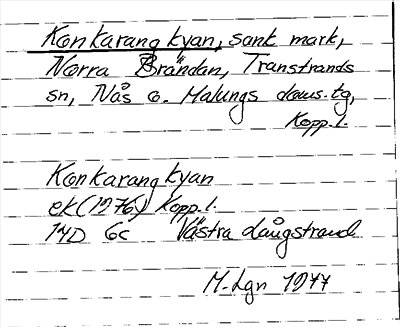 Konkarangkyan, sank mark,
Norra Brändan, Transtrands
sn, Nås o. Malungs doms. tg,
Kopp. l.
Konkarangkyan
ek (1976) Kopp. l.
14D 6c Västra Långstrand
M. Lgn 1977